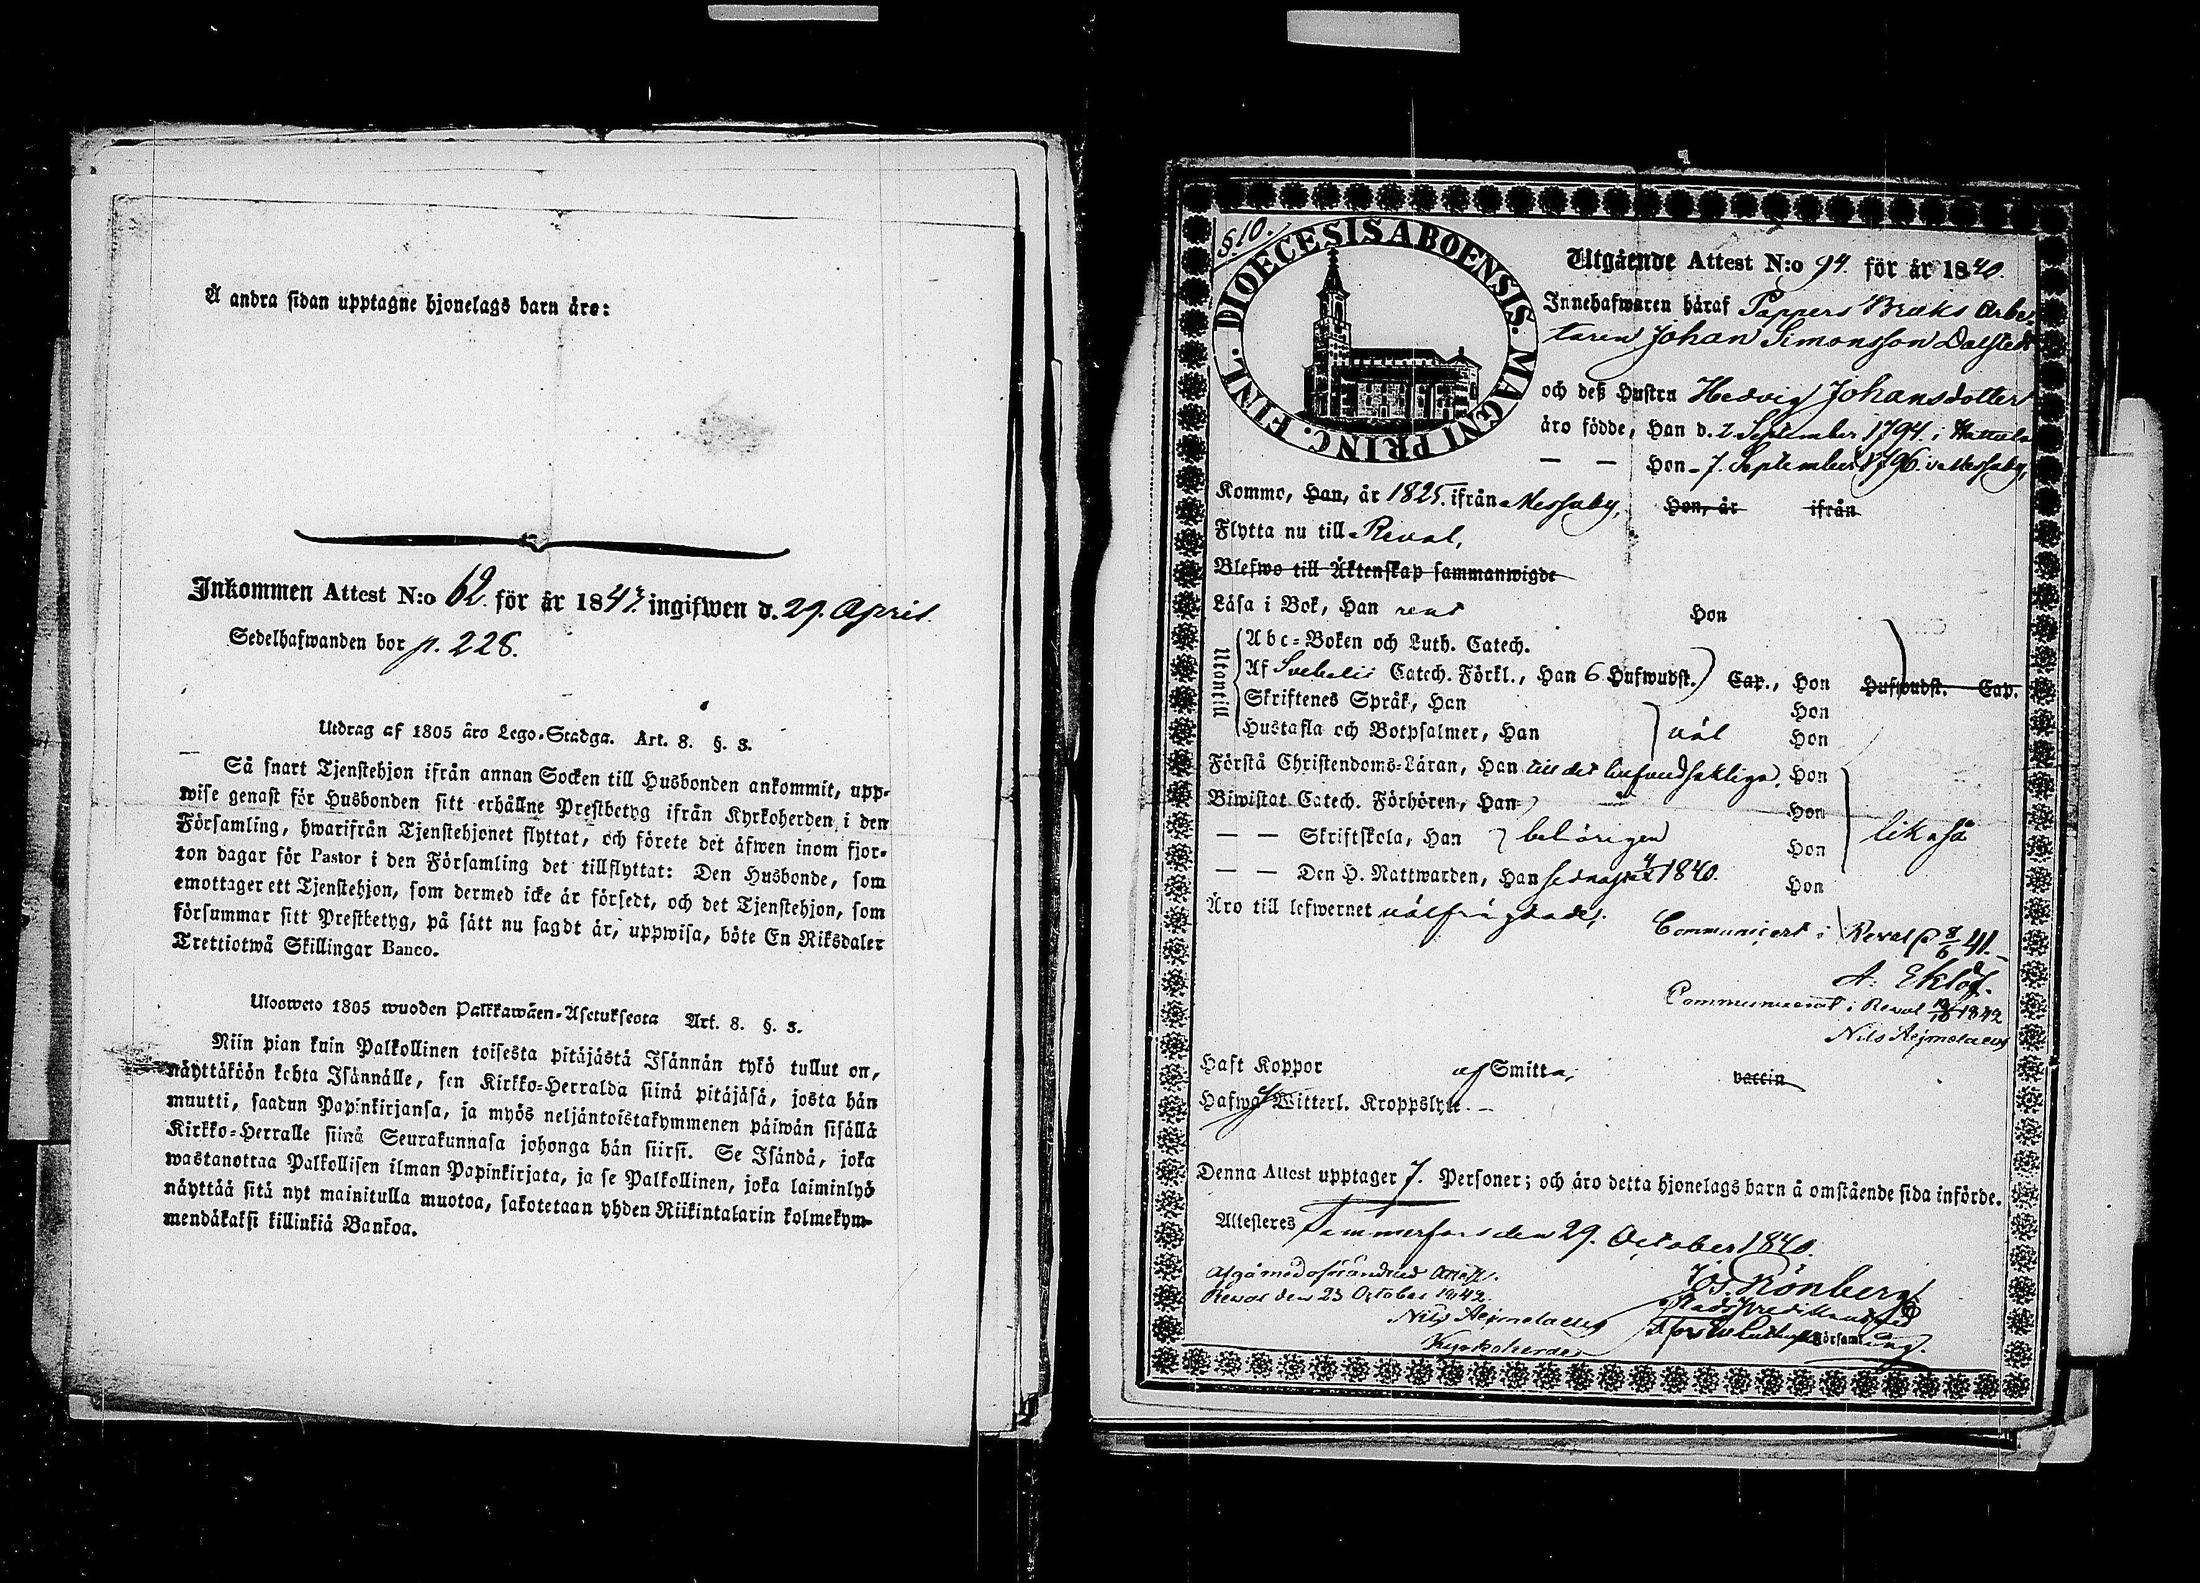 Å andra sidan upptagne hjonelags barn äro:
Inkommen Attest N:o 62. för år 1843. ingifwen d. 29. April.
Sedelhafwanden bor p. 228.
Utdrag af 1805 års Lego-Stadga. Art. 8. §. 3.
Så snart Tjenstehjon ifrån annan Socken till Husbonden ankommit, upp-
wise genast för Husbonden sitt erhållne Prestbetyg ifrån Kyrkoherden i den
Församling, hwarifrån Tjenstehjonet flyttat, och förete det äfwen inom fjor-
ton dagar för Pastor i den Församling det tillflyttat: Den Husbonde, som
emottager ett Tjenstehjon, som dermed icke är försedt, och det Tjenstehjon, som
försummar sitt Prestbetyg, på sätt nu sagdt är, uppwisa, böte En Riksdaler
Trettiotwå Skillingar Banco.
Uloosweto 1805 wuoden Palkkawäen-Asetuksesta Art. 8. §. 3.
Niin pian kuin Palkollinen toisesta pitäjästä Isännän tykö tullut on,
näyttäköön kohta Isännälle, sen Kirkko-Herralda siinä pitäjäsä, josta hän
muutti, saadun Papinkirjansa, ja myös neljäntoistakymmenen päiwän sisällä
Kirkko-Herralle siinä Seurakunnasa johonga hän siirsi. Se Isändä, joka
wastanottaa Palkollisen ilman Papinkirjata, ja se Palkollinen, joka laiminlyö
näyttää sitä nyt mainitulla muotoa, sakotetaan yhden Riikintalarin kolmekym-
mendäkaksi killinkiä Bankoa.
§10.
FINL. DIOECESIS ABOENSIS. MAGNI PRINC.
Utgående Attest N:o 94. för år 1840.
Innehafwaren häraf Pappers Bruks Arbe-
taren Johan Simonsson Dalstedt
och deß Hustru Hedvig Johansdotter
äro födde, Han d. 2. September 1794. i Hattula
— — Hon - 7. September 1796. i Messuby,
Kommo, Han, år 1825. ifrån Messuby, Hon, år ifrån
Flytta nu till Reval,
Blefwo till Äktenskap sammanwigde
Läsa i Bok, Han rent Hon
Utontill
Abc-Boken och Luth. Catech.
Af Svebelii Catech. Förkl., Han 6 Hufwudst. Cap., Hon Hufwudst. Cap.
Skriftenes Språk, Han Hon
Hustafla och Botpsalmer, Han väl Hon
Förstå Christendoms-Läran, Han till det hufvudsakliga. Hon
Biwistat Catech. Förhören, Han Hon
— — Skriftskola, Han behörigen Hon likaså
— — Den H. Nattwarden, Han sednast 1840. Hon
Äro till lefwernet välfrägdade,
Communicert i Reval d 8/6 41.
A: Eklöf.
Communicerat i Reval 1842
Nils Aejmelaeus
Haft Koppor af Smitta, vaccin
Hafwa Witterl. Kroppslyte. —
Denna Attest upptager 7. Personer; och äro detta hjonelags barn å omstående sida införde.
Attesteres Tammerfors den 29. October 1840.
Afgå med oförändrad Attest.
Reval den 23 October 1842.
Nils Aejmelaeus
Kyrkoherde
Rönberg
Stadspredikant
Församling.